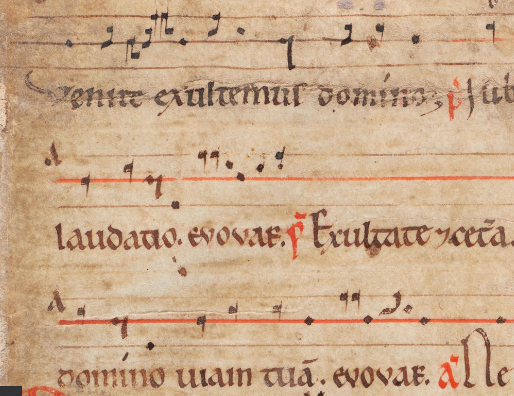 Venite exultemus domino; p̃ Iub
laudatio. evovae. p̃ Exultate ⁊ cet̃a.
domino uiam tuā. evovae. ã Ne